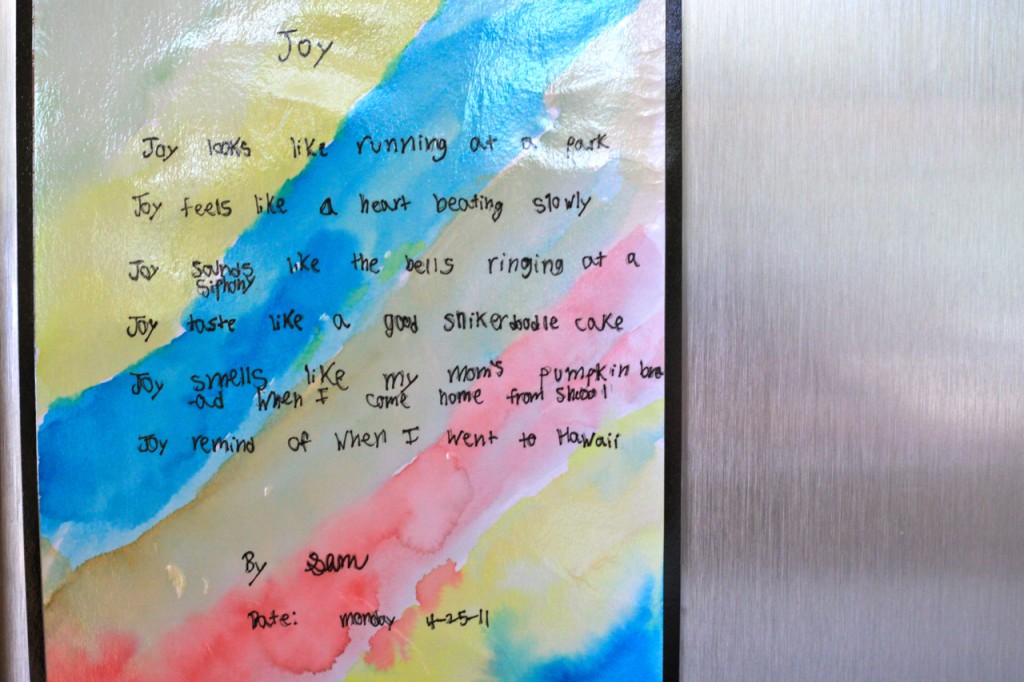 Joy
Joy looks like running at a park
Joy feels like a heart beating slowly
Joy sounds like the bells ringing at a
siphony
Joy taste like a good snikerdoodle cake
Joy smells like my mom's pumpkin bre
-ad when I come home from shool
Joy remind of when I went to Hawaii
By Sam
Date: monday 4-25-11